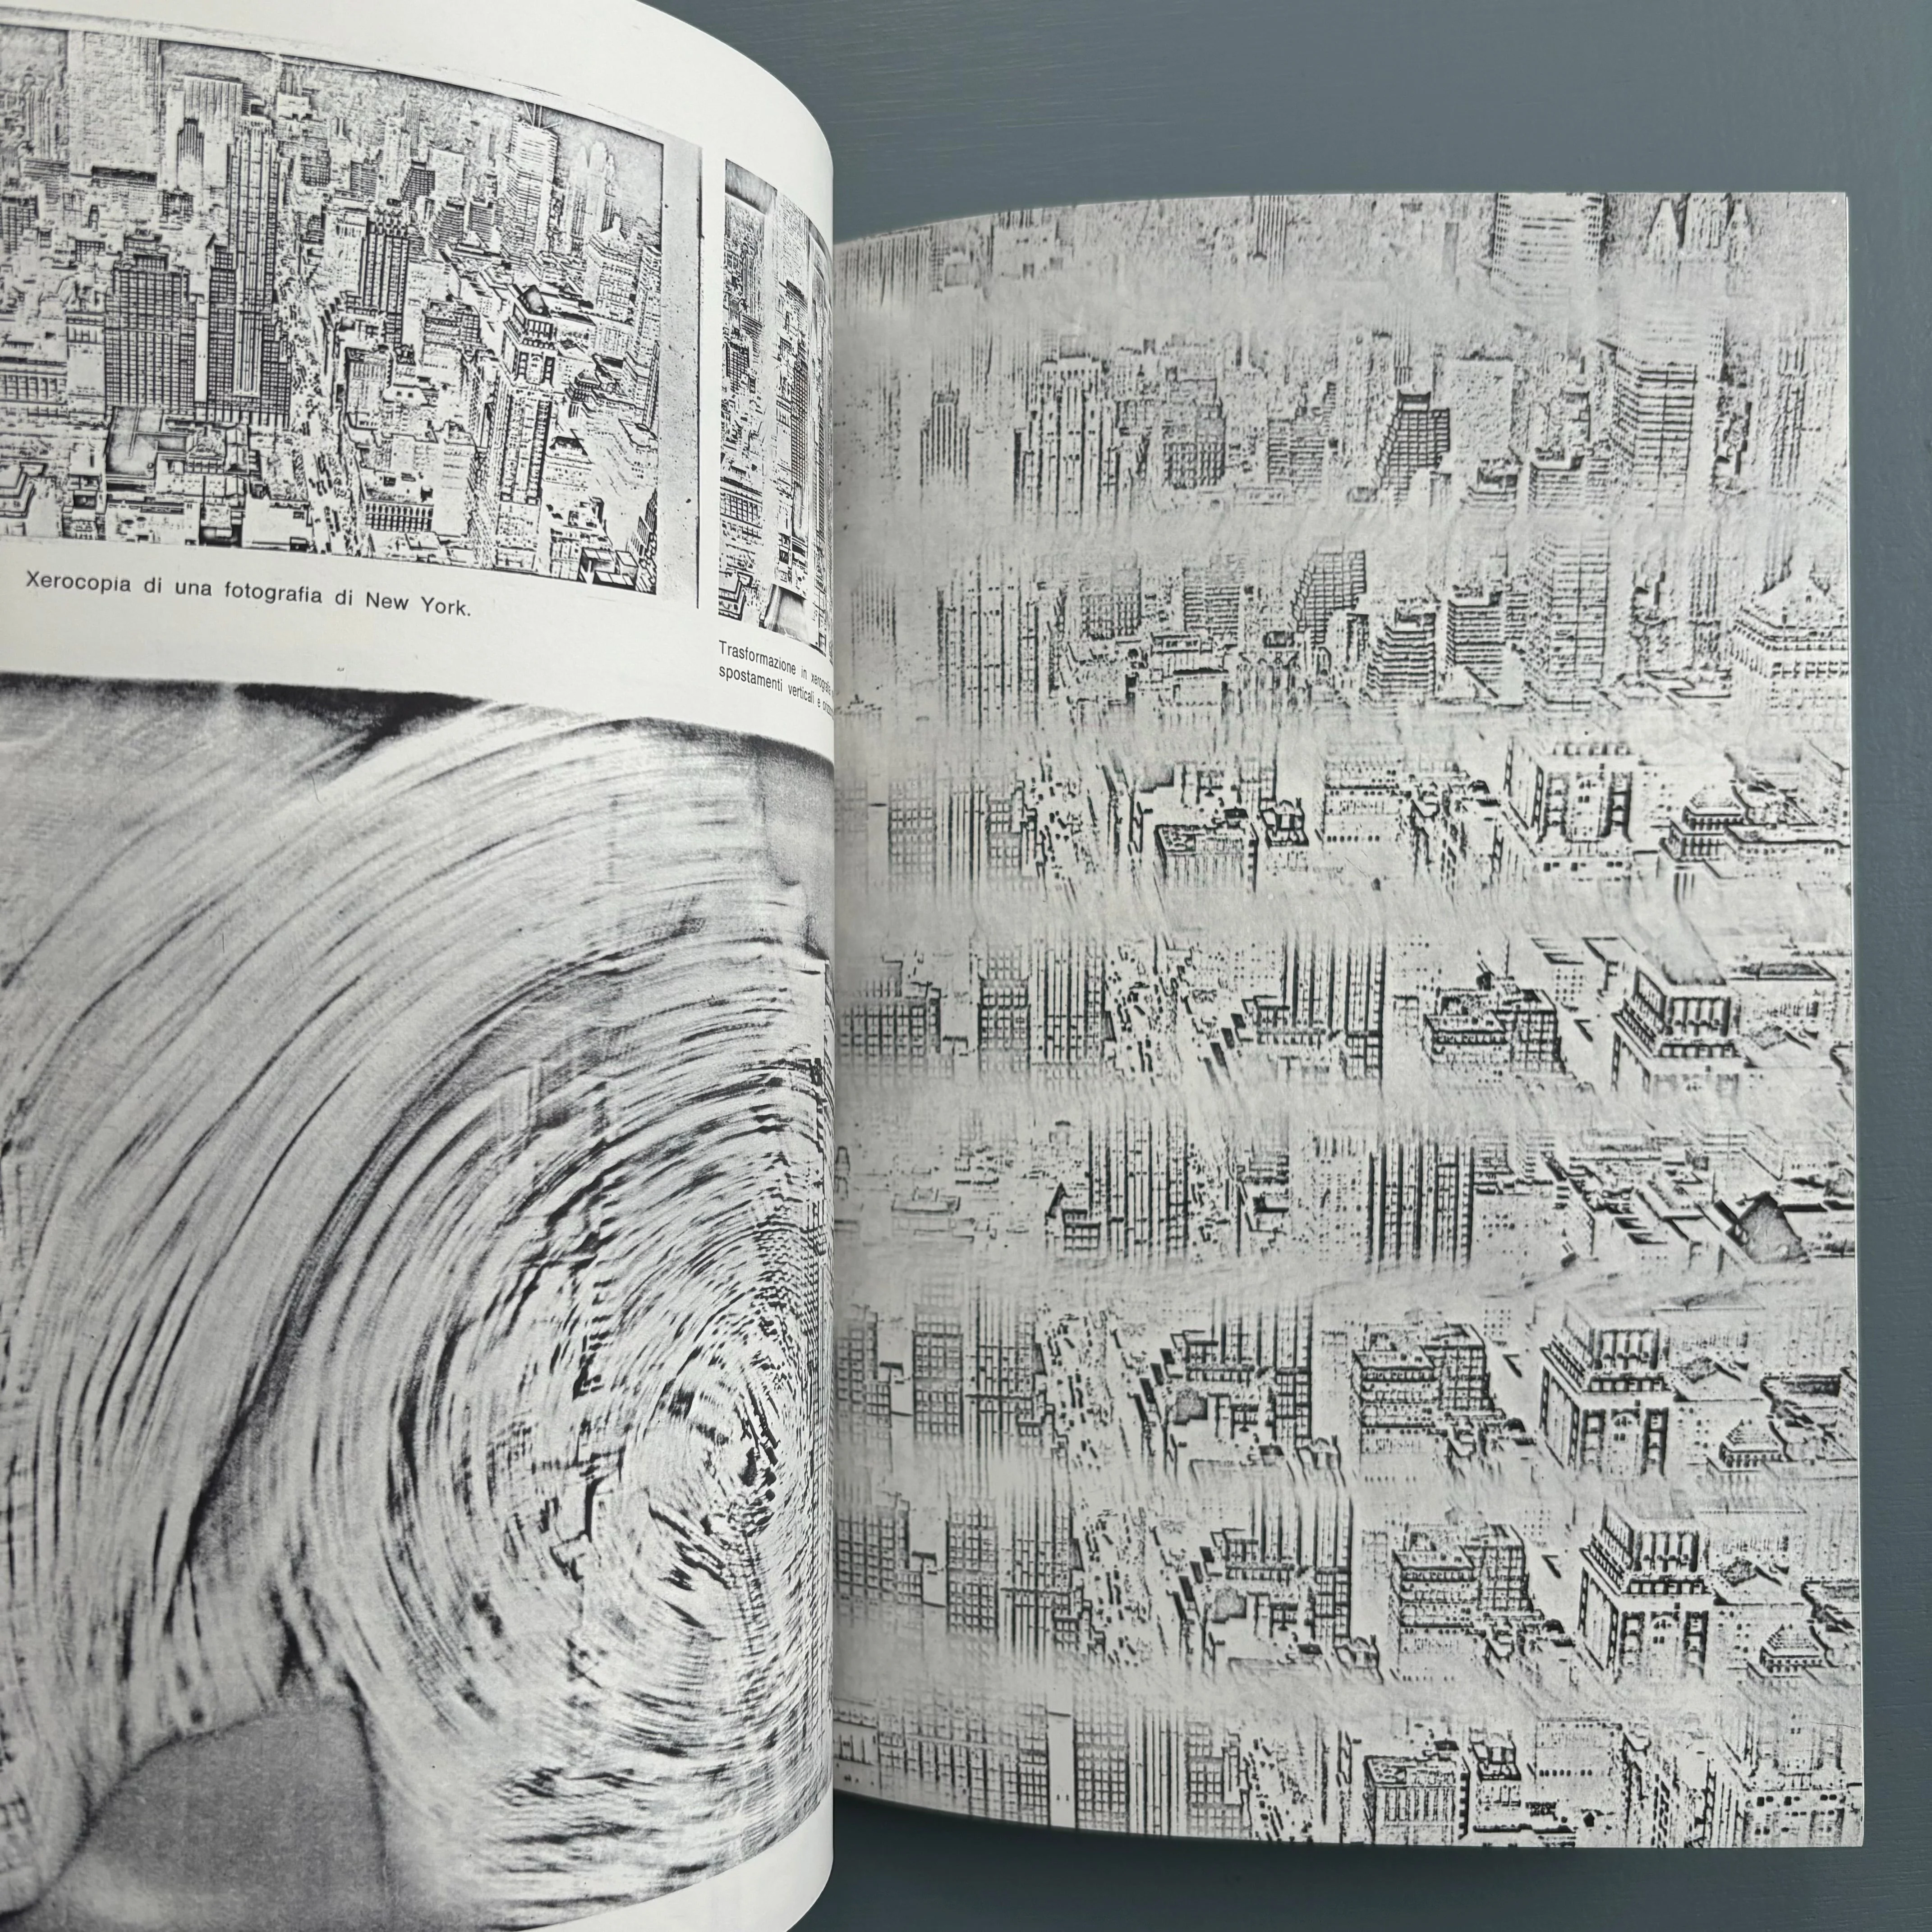 Xerocopia di una fotografia di New York.
Trasformazione in xerografia
spostamenti verticali e